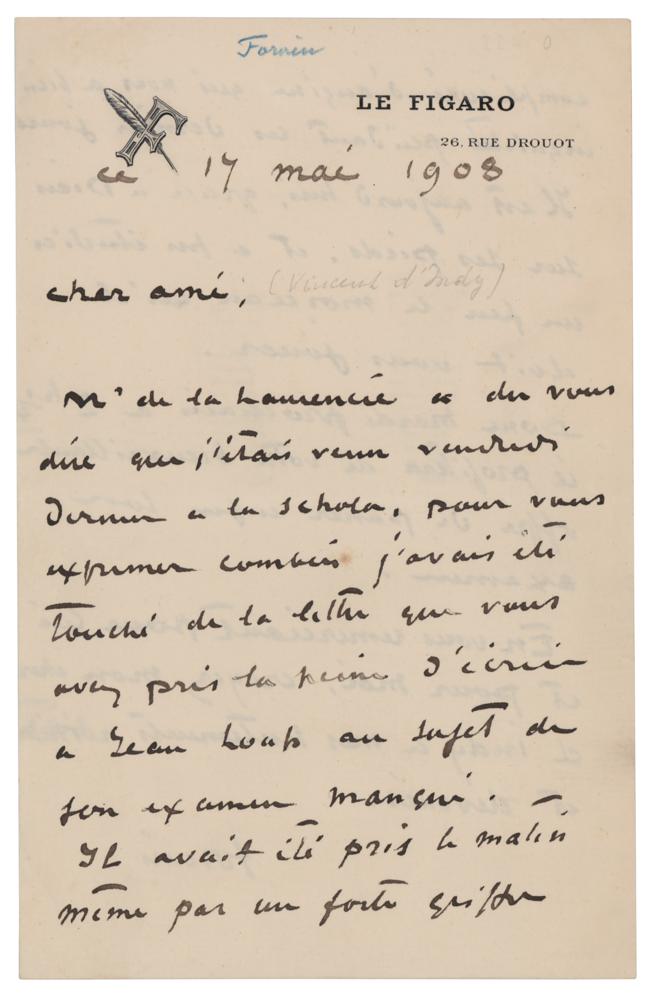 Forain
LE FIGARO
26, RUE DROUOT
ce 17 mai 1908
cher ami, (Vincent d'Indy)
Mr de la Laurencie a du vous
dire que j'étais venu vendredi
dernier a la Schola, pour vous
exprimer combien j'avais été
touché de la lettre que vous
avez pris la peine d'écrire
a Jean Loup au sujet de
son examen manqué.
Il avait été pris le matin
même par un forte grippe